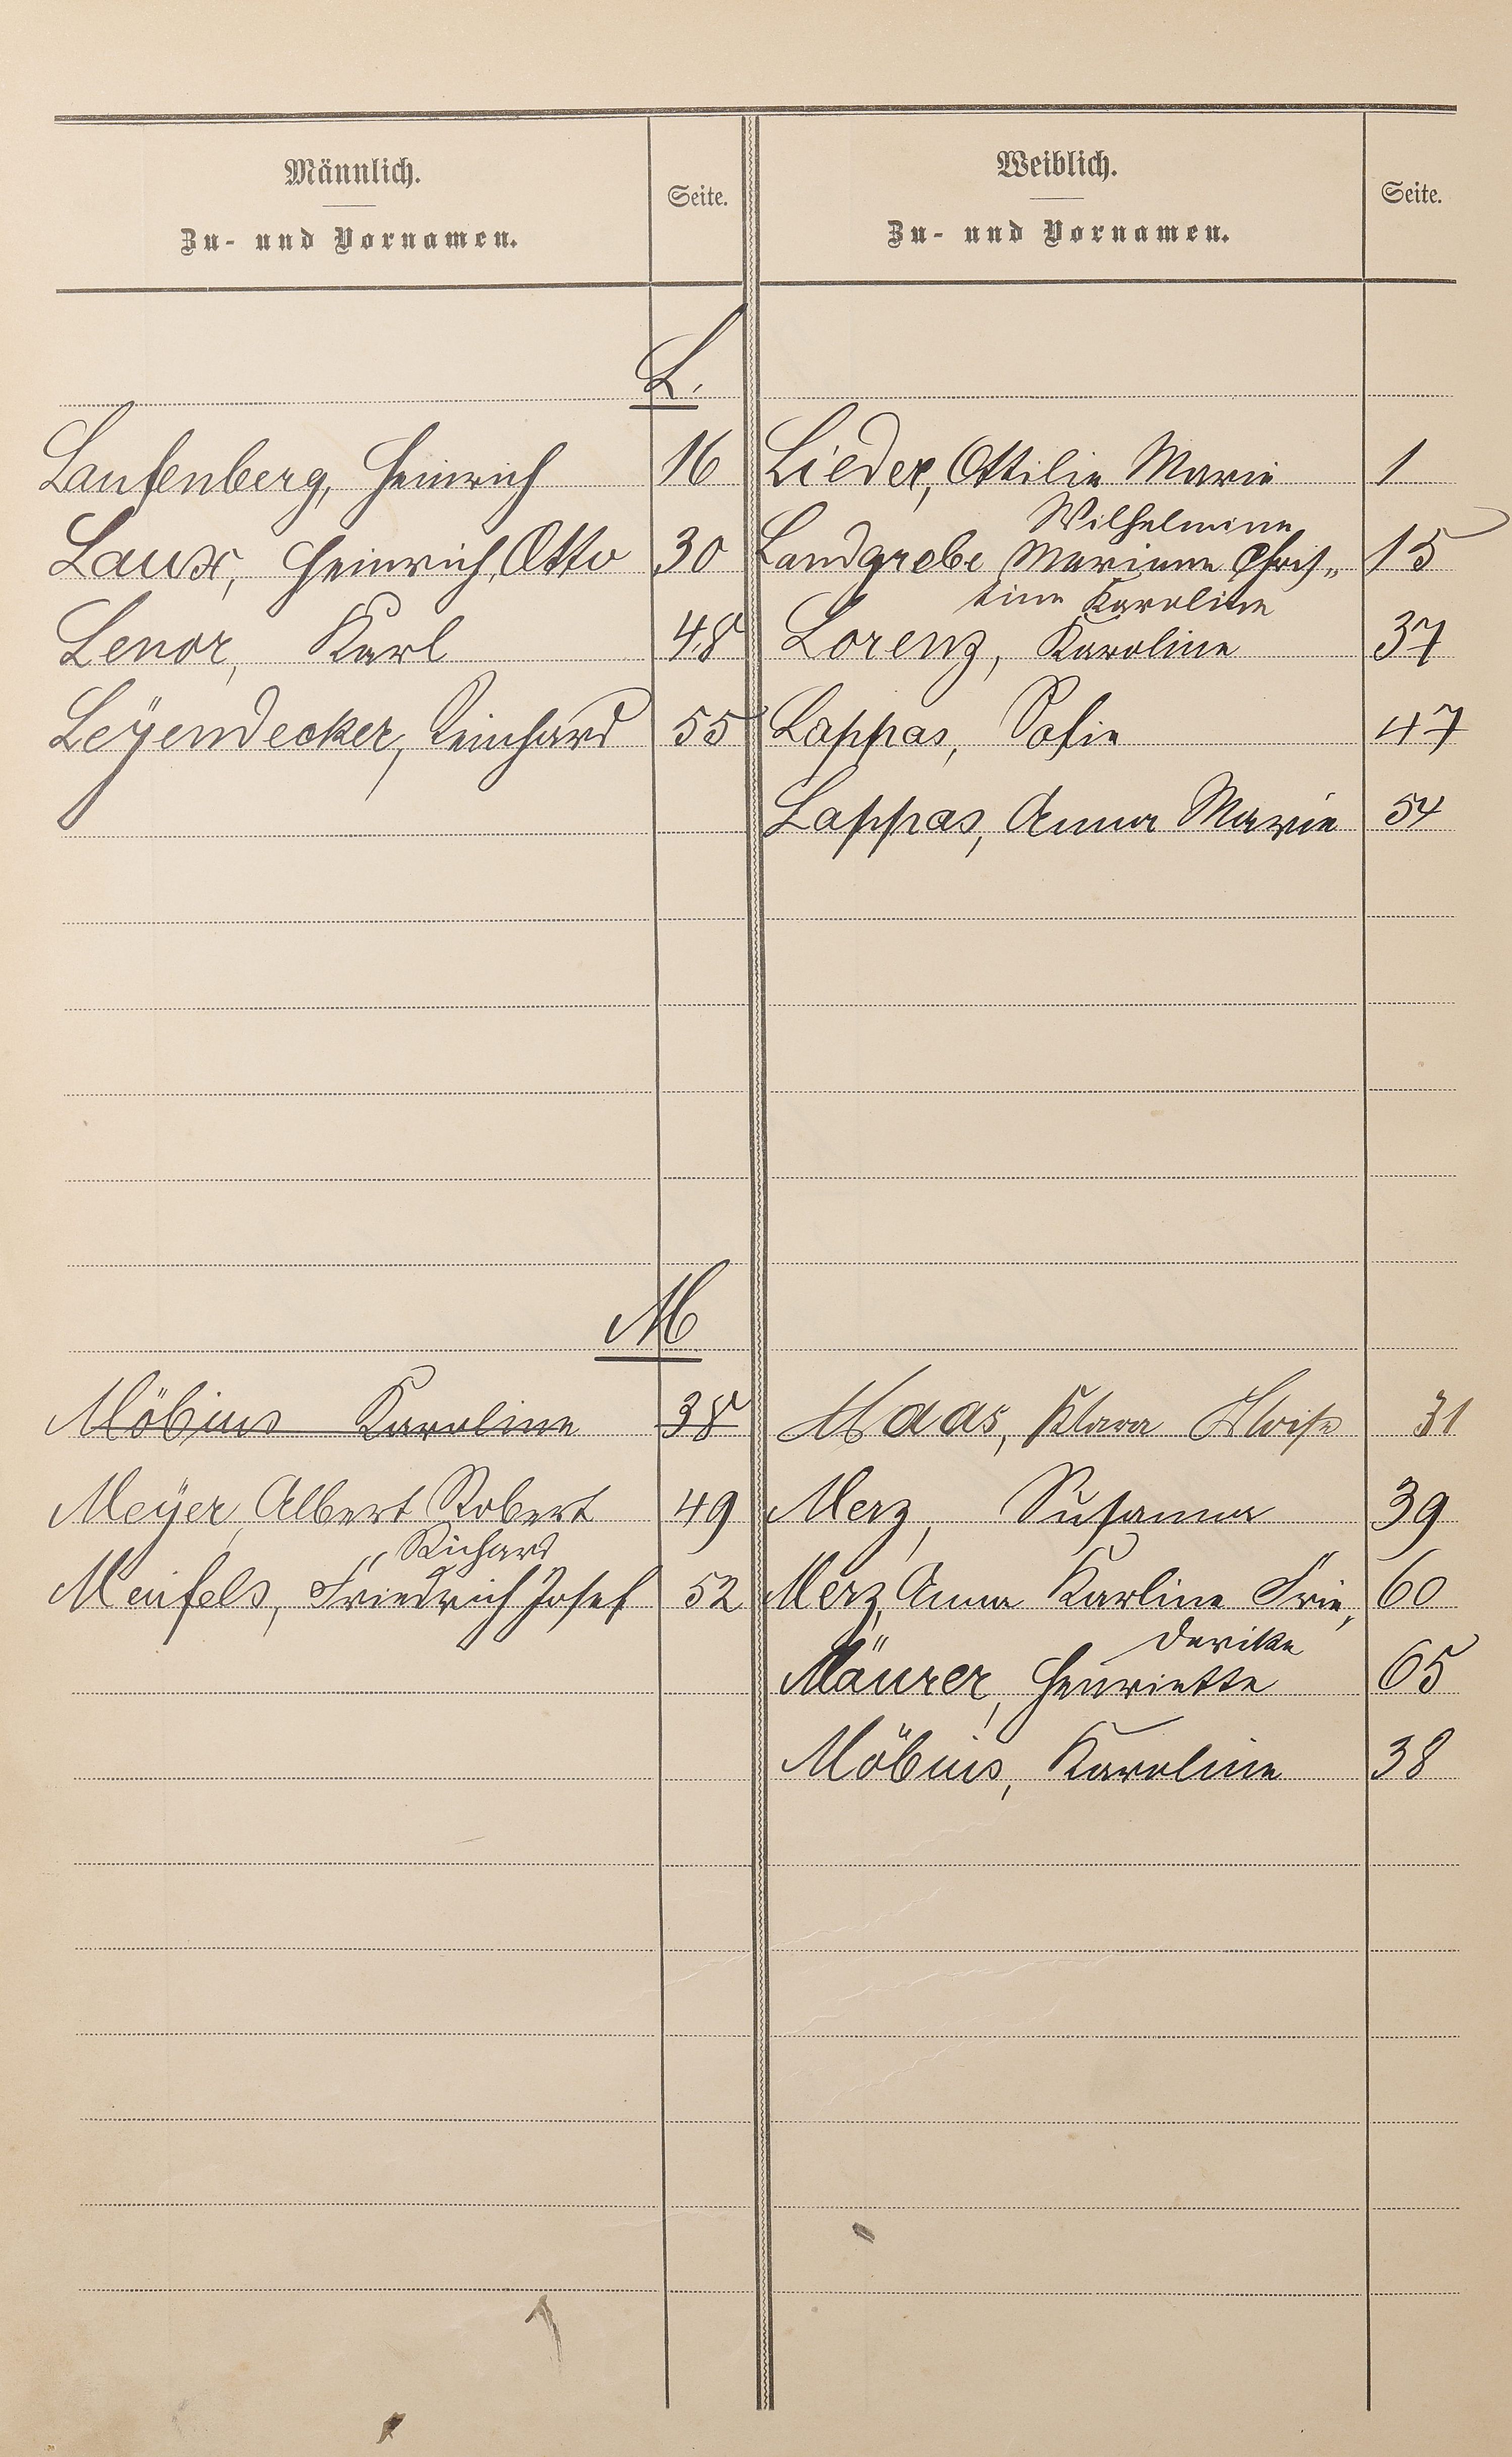 Männlich.
Zu- und Vornamen.
Seite.
Weiblich.
Zu- und Vornamen.
Seite.
L.
Laufenberg, Heinrich 16
Laux, Heinrich, Otto 30
Lenor, Karl 48
Leÿendecker, Reinhard 55
Lieder, Ottilie Marie 1
Wilhelmine
Landgrebe Marianne Chris„ 15
tine Karoline
Lorenz, Karoline 37
Lappas, Sofie 47
Lappas, Anna Marie 54
M
Möbius Karoline 38
Meÿer, Albert Robert 49
„ Richard
Meifels, Friedrich Josef 52
Maas, Klara Eloise 31
Merz, Susanna 39
Merz, Anna Karline Frie„ 60
derike
Mäurer, Henriette 65
Möbius, Karoline 38